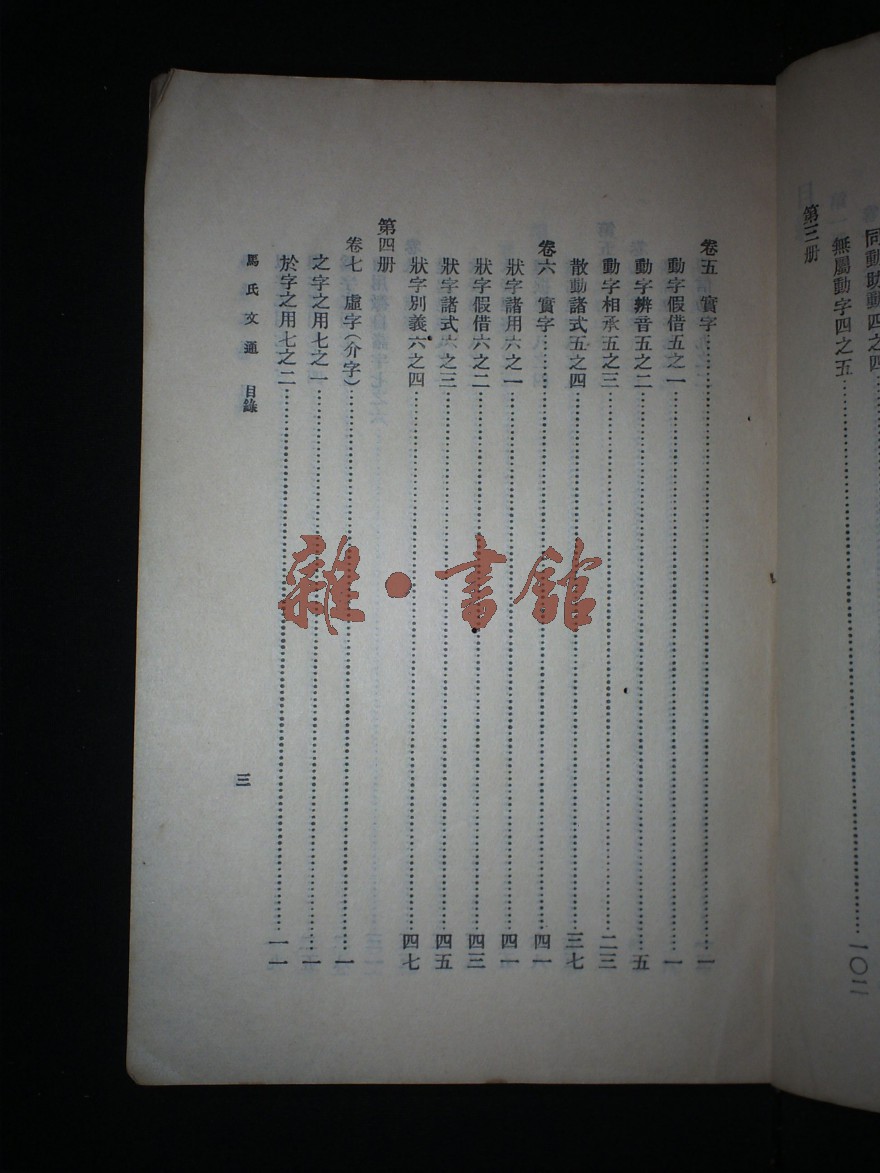 同動助動四之四
無屬動字四之五……一〇二
第三册
卷五 實字……一
動字假借五之一……一
動字辨音五之二……五
動字相承五之三……二三
散動諸式五之四……三七
卷六 實字……四一
狀字諸用六之一……四一
狀字假借六之二……四三
狀字諸式六之三……四五
狀字別義六之四……四七
第四册
卷七 虛字(介字)……一
之字之用七之一……一
於字之用七之二……一一
馬氏文通 目錄 三
雜·書館